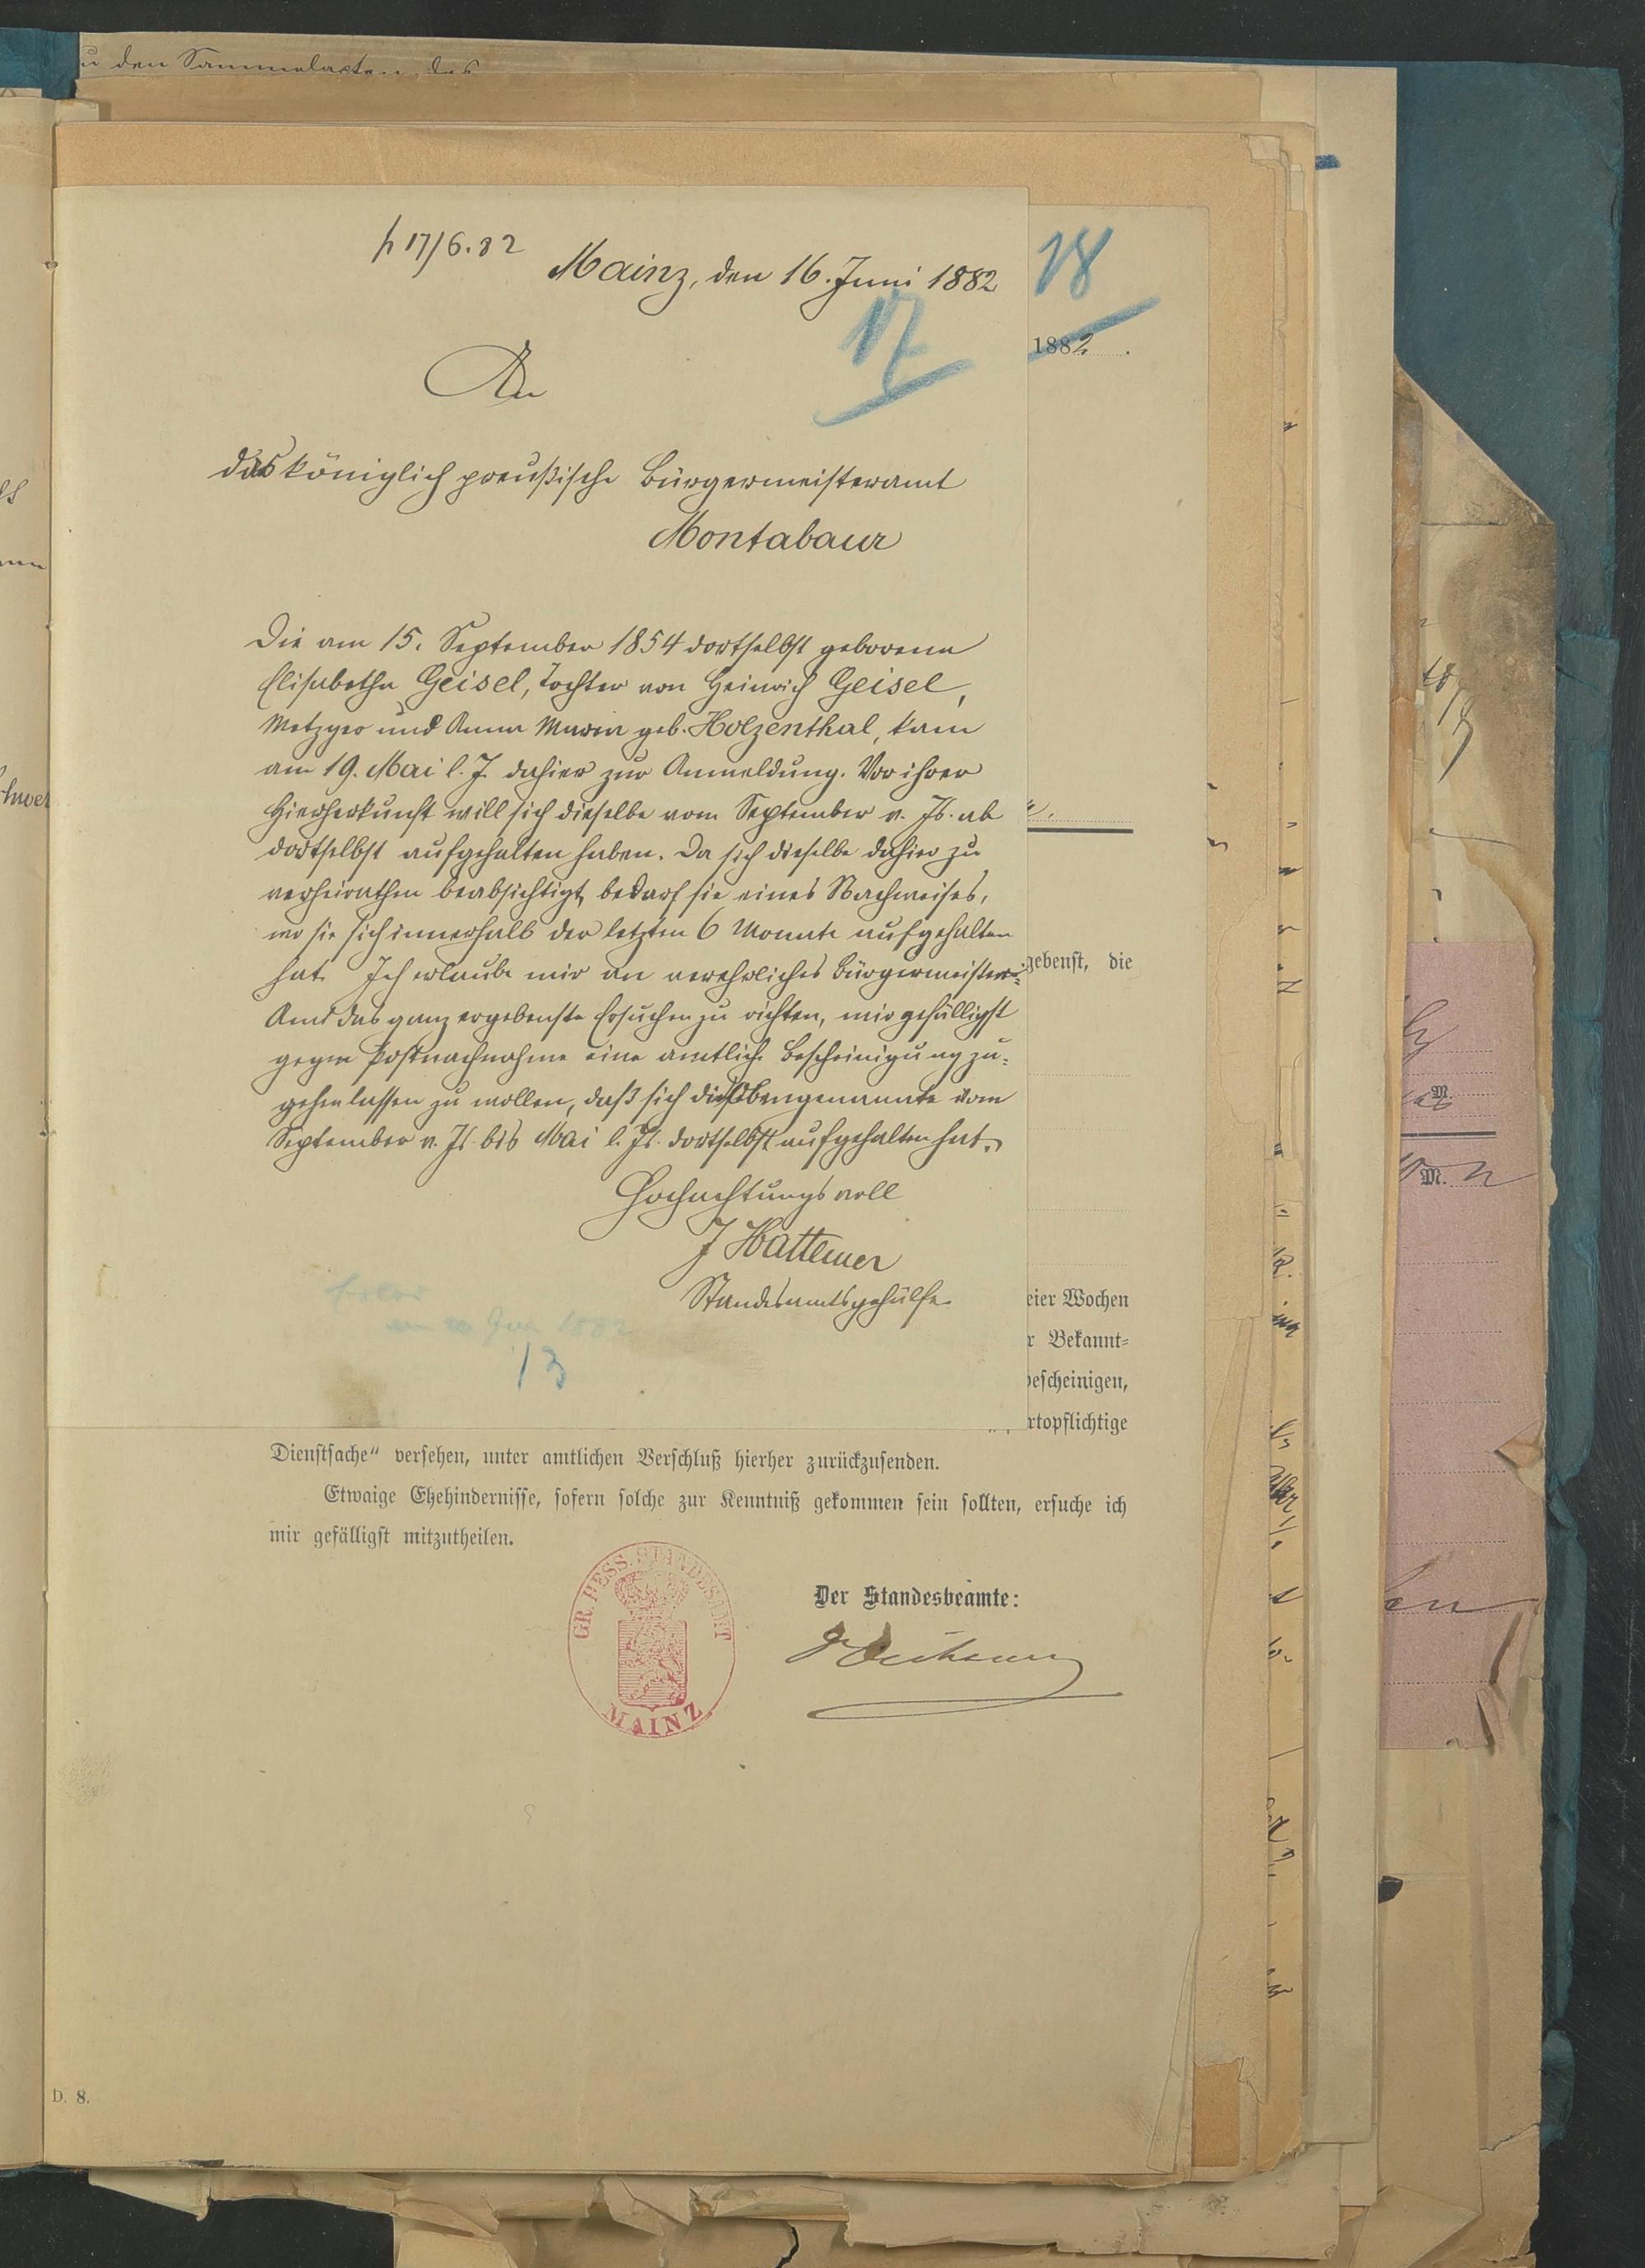 u den Sammelacten des
p 17/6.82
Mainz, den 16. Juni 1882
18
17
1882.
An
das königlich preußische Bürgermeisteramt
Montabaur
Die am 15. September 1854 dortselbst geborene
Elisabetha Geisel, Tochter von Heinrich Geisel,
Metzger und Anna Maria geb. Holzenthal, kam
am 19. Mai l. J. dahier zur Anmeldung. Vor ihrer
Hierherkunft will sich dieselbe vom September v. Js. ab
dortselbst aufgehalten haben. Da sich dieselbe dahier zu
verheirathen beabsichtigt, bedarf sie eines Nachweises,
wo sie sich innerhalb der letzten 6 Monate aufgehalten
hat. Ich erlaube mir an verehrliches Bürgermeister-
gebenst, die
Amt das ganz ergebenste Ersuchen zu richten, mir gefälligst
gegen Postnachnahme eine amtliche Bescheinigung zu-
gehen lassen zu wollen, daß sich die Obengenannte vom
September v. Js. bis Mai l. Js. dortselbst aufgehalten hat.
Hochachtungsvoll
J Hattemer
Standesamtsgehülfe
eier Wochen
r Bekannt-
bescheinigen,
rtopflichtige
13
Dienstsache" versehen, unter amtlichen Verschluß hierher zurückzusenden.
Etwaige Ehehindernisse, sofern solche zur Kenntniß gekommen sein sollten, ersuche ich
mir gefälligst mitzutheilen.
GR. HESS. STANDESAMT
MAINZ
Der Standesbeamte:
D. 8.
M.
M.